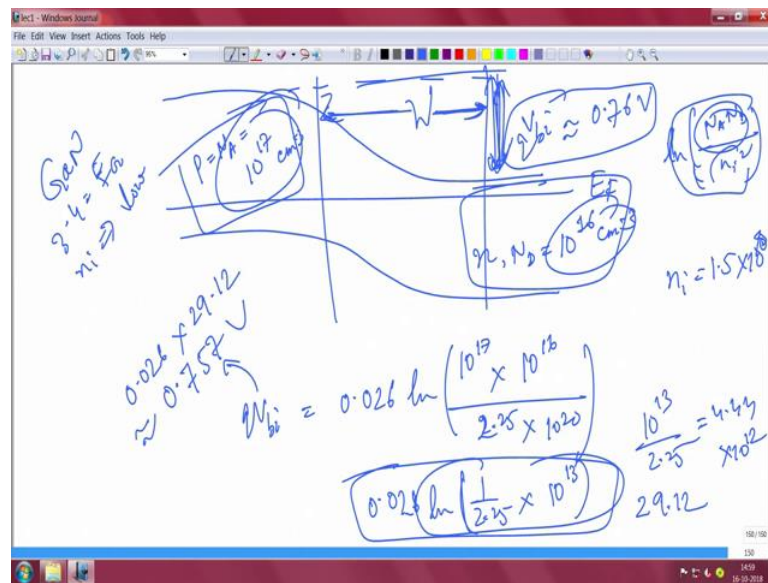 lec1 - Windows Journal
File Edit View Insert Actions Tools Help
GaN
3.4 = EG
ni ⇒ low
P = NA =
10^17 cm^-3
W
qVbi ≈ 0.76V
ln (NA ND / ni^2)
EF
n, ND = 10^16 cm^-3
ni = 1.5 × 10^10
0.026 × 29.12
≈ 0.757 V
qVbi = 0.026 ln (10^17 × 10^16 / 2.25 × 10^20)
10^13 / 2.25 = 4.44 × 10^12
0.026 ln (1 / 2.25 × 10^13)
29.12
150/150
150
14:59
16-10-2018